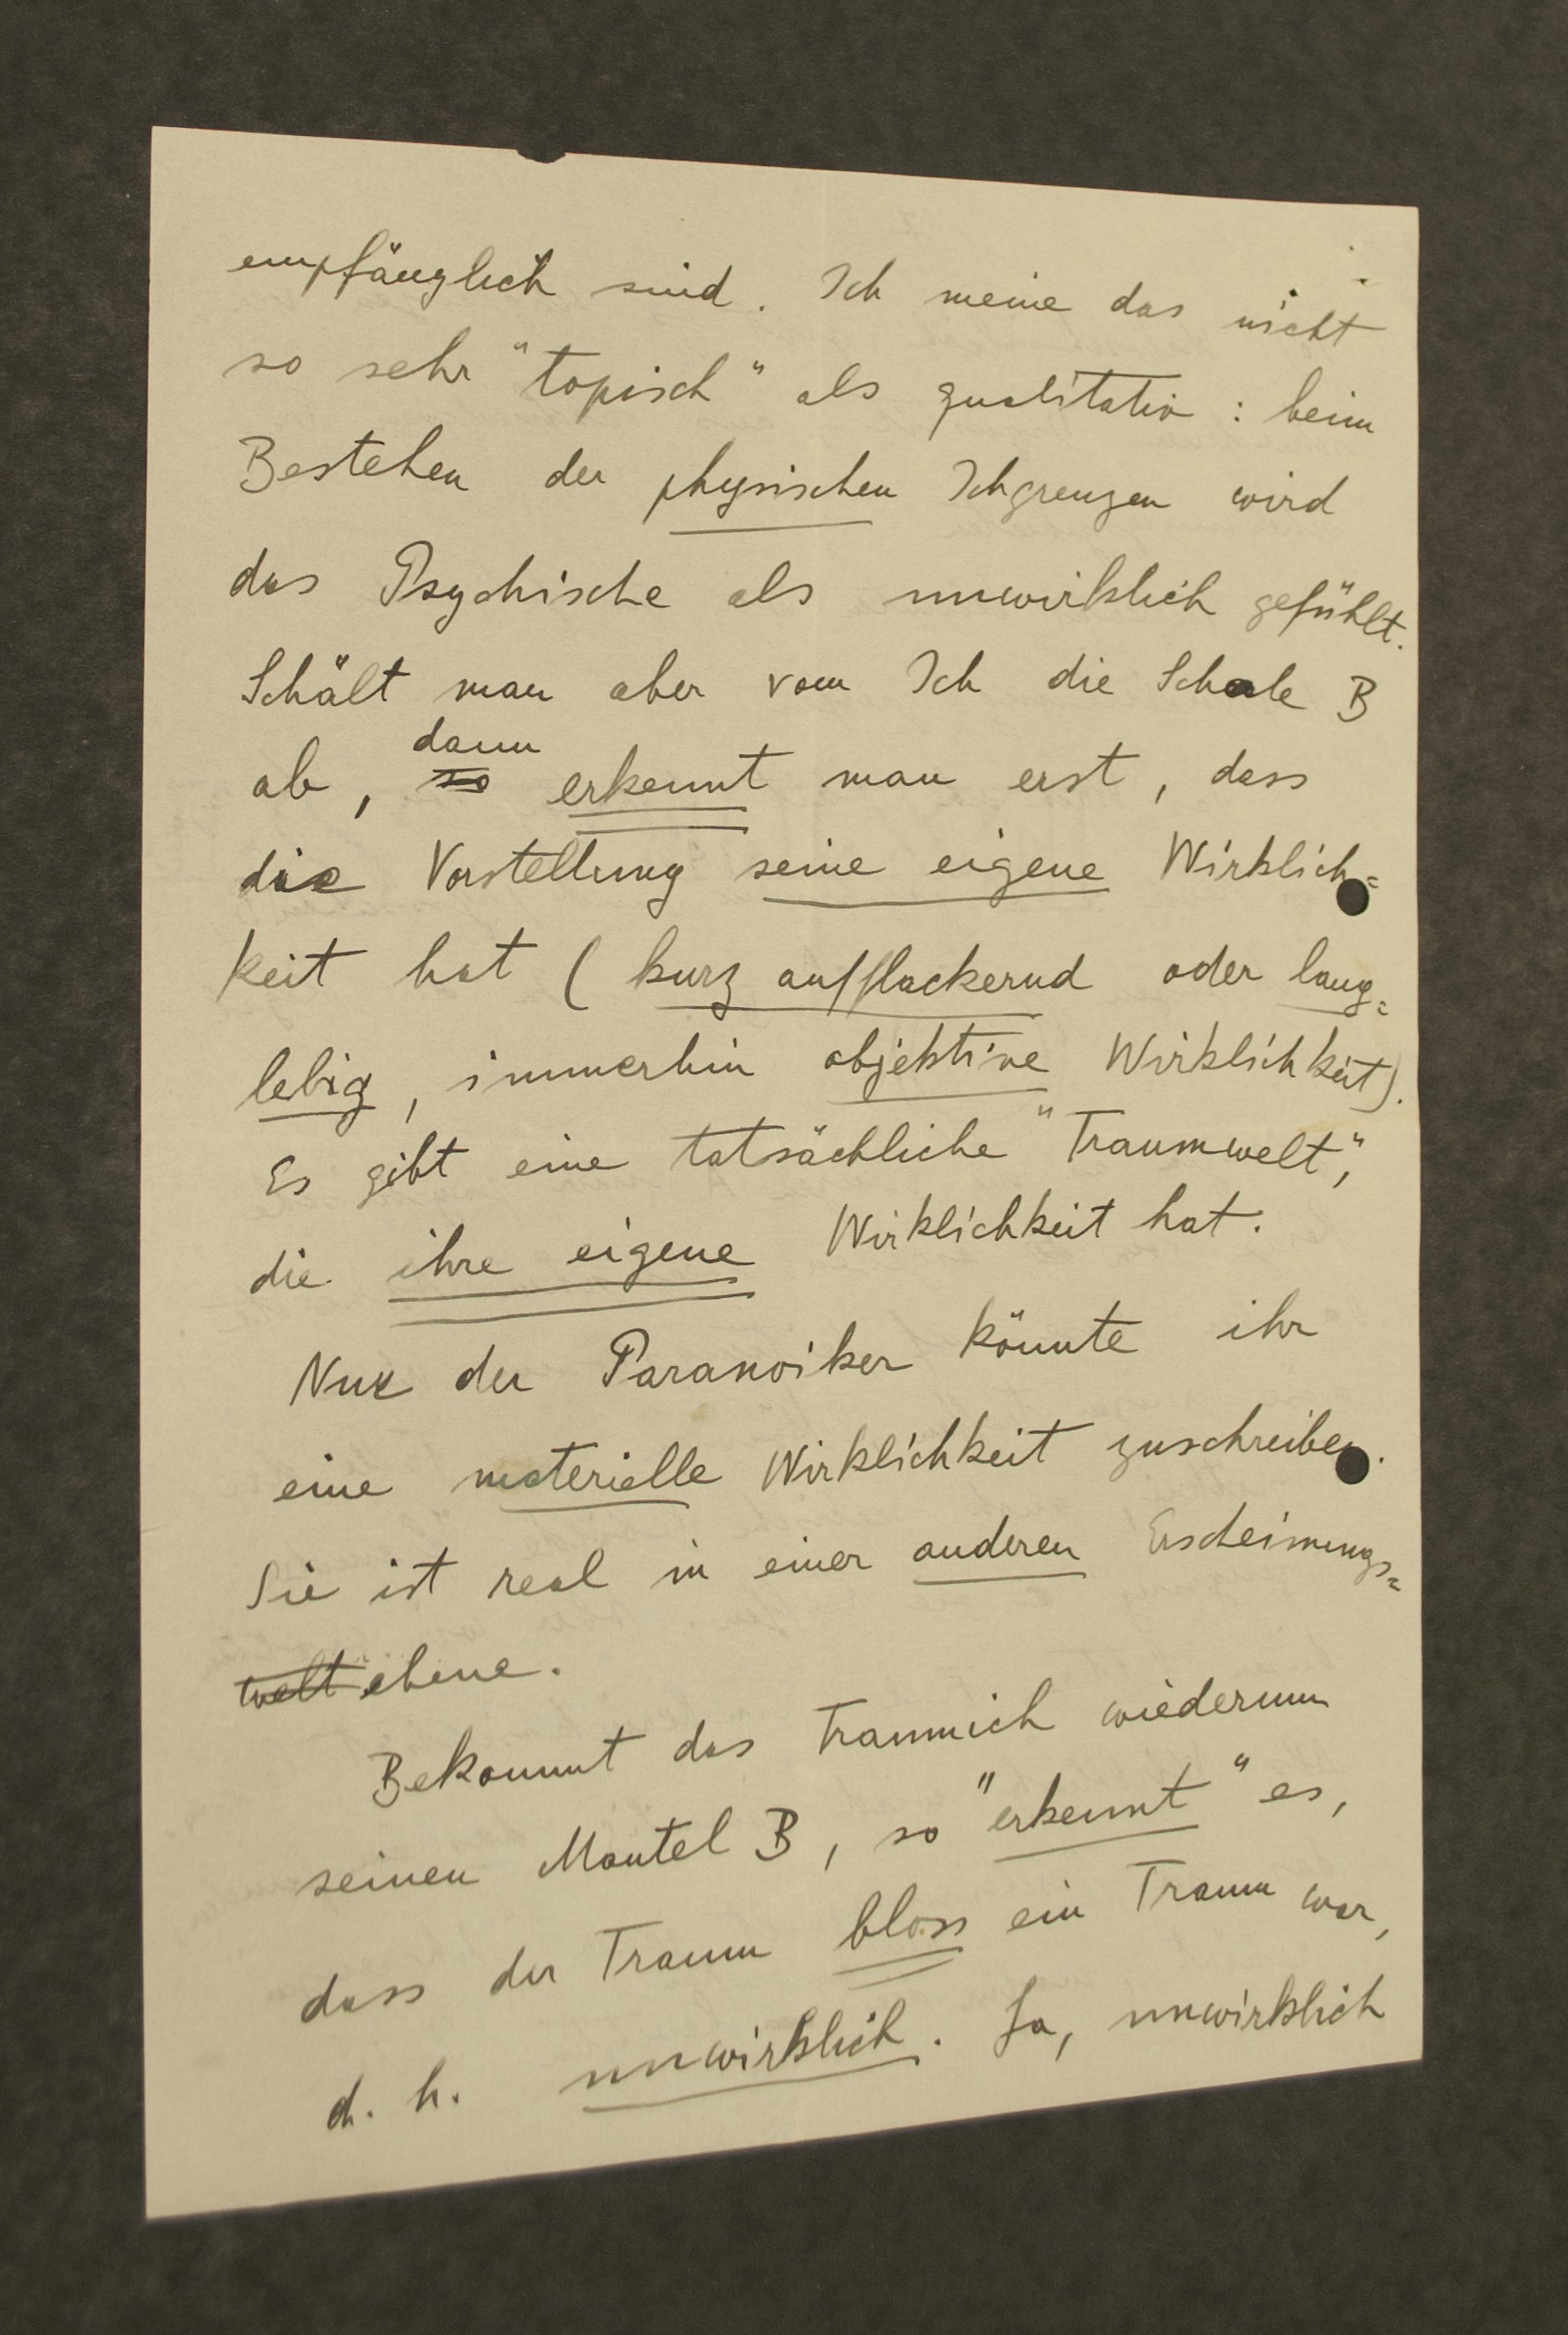 empfänglich sind. Ich meine das nicht
so sehr "topisch" als qualitativ : beim
Bestehen der physischen Ichgrenzen wird
das Psychische als unwirklich gefühlt.
Schält man aber vom Ich die Schale B
ab, so dann erkennt man erst, dass
die Vorstellung seine eigene Wirklich=
keit hat ( kurz aufflackernd oder lang=
lebig, immerhin objektive Wirklichkeit).
Es gibt eine tatsächliche "Traumwelt",
die ihre eigene Wirklichkeit hat.
Nur der Paranoiker könnte ihr
eine materielle Wirklichkeit zuschreiben.
Sie ist real in einer anderen Erscheinungs=
welt ebene.
Bekommt das Traumich wiederum
seinen Mantel B, so "erkennt" es,
dass der Traum bloss ein Traum war,
d. h. unwirklich. Ja, unwirklich